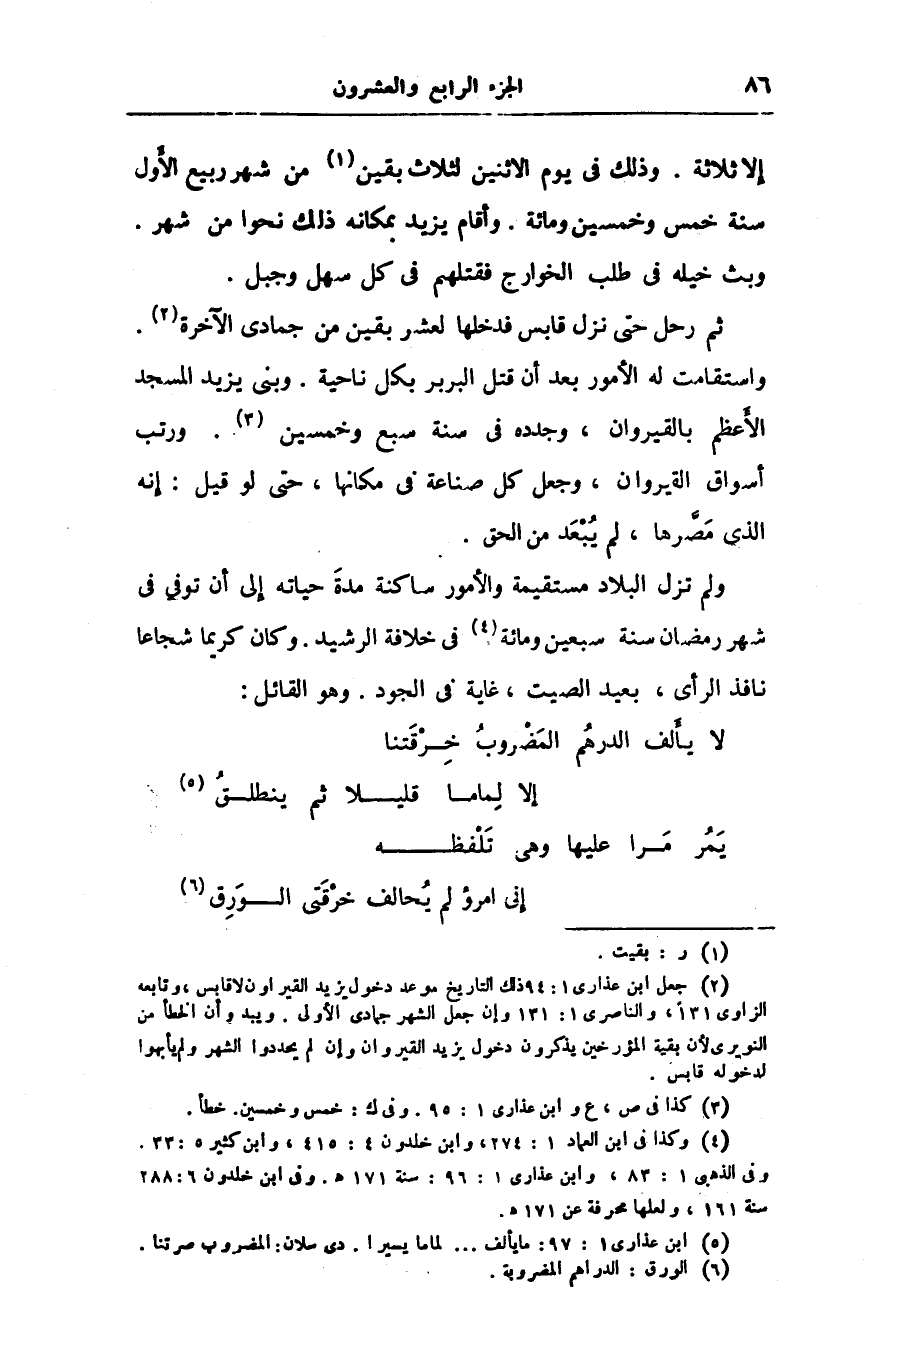 ٨٦ الجزء الرابع والعشرون
إلا ثلاثة . وذلك فى يوم الاثنين لثلاث بقين (١) من شهر ربيع الأول
سنة خمس وخمسين ومائة . وأقام يزيد بمكانه ذلك نحوا من شهر .
وبث خيله فى طلب الخوارج فقتلهم فى كل سهل وجبل .
ثم رحل حتى نزل قابس فدخلها لعشر بقين من جمادى الآخرة (٢) .
واستقامت له الأمور بعد أن قتل البربر بكل ناحية . وبنى يزيد المسجد
الأعظم بالقيروان ، وجدده فى سنة سبع وخمسين (٣) . ورتب
أسواق القيروان ، وجعل كل صناعة فى مكانها ، حتى لو قيل : إنه
الذى مَصَّرها ، لم يُبْعَد من الحق .
ولم تزل البلاد مستقيمة والأمور ساكنة مدةَ حياته إلى أن توفي فى
شهر رمضان سنة سبعين ومائة (٤) فى خلافة الرشيد . وكان كريما شجاعا
نافذ الرأى ، بعيد الصيت ، غاية فى الجود . وهو القائل :
لا يـألف الدرهُم المَضْروبُ خِـرْقَتنا
إلا لِماما قليـلا ثم ينطلـقُ (٥)
يَمُر مَـرا عليها وهى تَلْفظـه
إنى امرؤ لم يُحالف خرْقَتى الـوَرِق (٦)
(١) ر : بقيت .
(٢) جعل ابن عذارى ١ : ٩٤ ذلك التاريخ موعد دخول يزيد القيراون لا قابس ، وتابعه
الزاوى ١٣١أ ، والناصرى ١ : ١٣١ وإن جعل الشهر جمادى الأولى . ويبدو أن الخطأ من
النويرى لأن بقية المؤرخين يذكرون دخول يزيد القيروان وإن لم يحددوا الشهر ولم يأبهوا
لدخوله قابس .
(٣) كذا فى ص ، ع و ابن عذارى ١ : ٩٥ . وفى ك : خمس وخمسين . خطأ .
(٤) وكذا فى ابن العماد ١ : ٢٧٤ ، وابن خلدون ٤ : ٤١٥ ، وابن كثير ٥ : ٣٣ .
وفى الذهبى ١ : ٨٣ ، وابن عذارى ١ : ٩٦ : سنة ١٧١ ه . وفى ابن خلدون ٦ : ٢٨٨
سنة ١٦١ ، ولعلها محرفة عن ١٧١ ه .
(٥) ابن عذارى ١ : ٩٧ : مايألف ... لماما يسيرا . دى سلان : المضروب صرتنا .
(٦) الورق : الدراهم المضروبة .